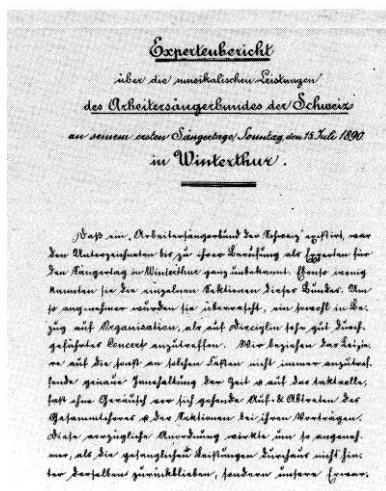 Expertenbericht
über die musikalischen Leistungen
des Arbeitersängerbundes der Schweiz
an seinem ersten Sängertage, Sonntag, den 15 Juli 1890
in Winterthur.
Daß ein „Arbeitersängerbund der Schweiz" existirt, war
den Unterzeichneten bis zu ihrer Berufung als Experten für
den Sängertag in Winterthur ganz unbekannt. Ebenso wenig
kannten sie die einzelnen Sektionen dieses Bundes. Um
so angenehmer wurden sie überrascht, ein sowohl in Be-
zug auf Organisation, als auf Disciplin sehr gut durch-
geführtes Concert anzutreffen. Wir beziehen das Letzte-
re auf die sonst an solchen Festen nicht immer anzutref-
fende genaue Innehaltung der Zeit & auf das taktvolle,
fast ohne Geräusch vor sich gehende Auf- & Abtreten des
Gesammtchores & der Sektionen bei ihren Vorträgen.
Diese vorzügliche Anordnung wirkte um so angeneh-
mer, als die gesanglichen Leistungen durchaus nicht hin-
ter derselben zurückblieben, sondern unsere Erwar-